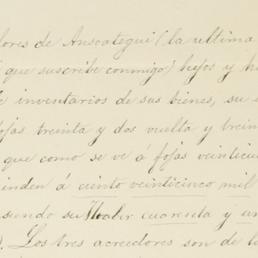 lores de Ansoategui (la ultima
que suscribe conmigo) hijos y h
e inventarios de sus bienes, su
ojas treinta y dos vuelta y trein
que como se vé á fojas veinticu
inden á ciento veinticinco mil
siendo su valor cuarenta y un
). Los tres acreedores son de la